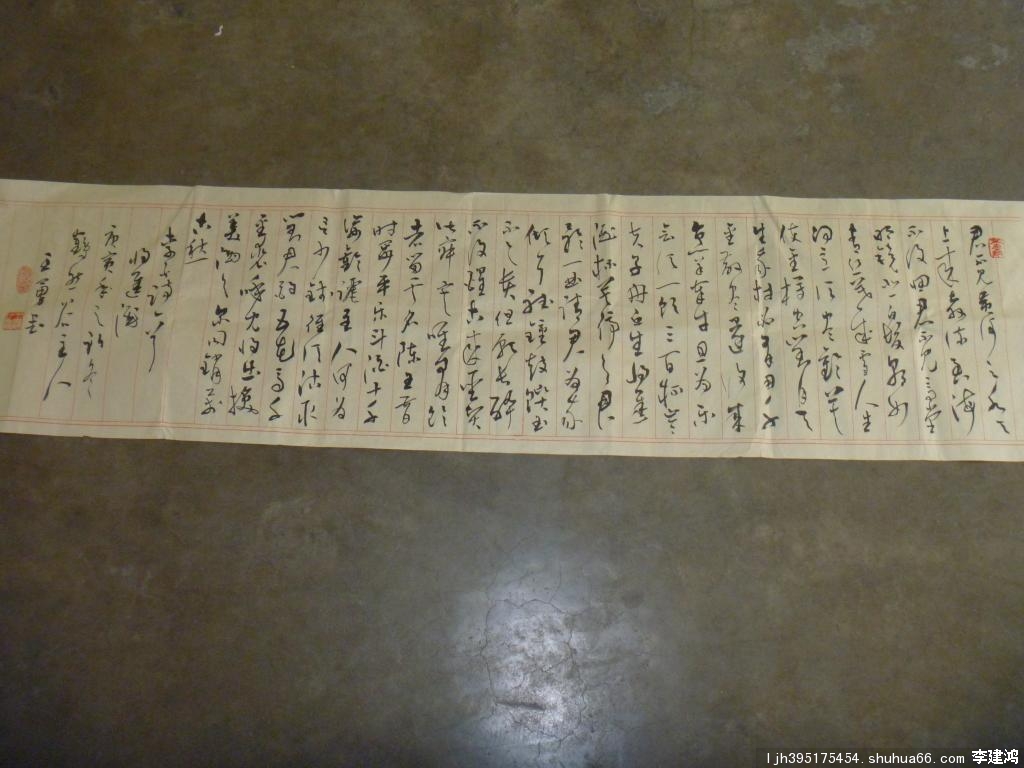 君不见黄河之水天
上来奔流到海
不复回君不见高堂
明镜悲白发朝如
青丝暮成雪人生
得意须尽欢莫
使金樽空对月天
生我材必有用千
金散尽还复来
烹羊宰牛且为乐
会须一饮三百杯岑
夫子丹丘生将进
酒杯莫停与君
歌一曲请君为我
倾耳听钟鼓馔玉
不足贵但愿长醉
不复醒古来圣贤
皆寂寞唯有饮
者留其名陈王昔
时宴平乐斗酒十千
恣欢谑主人何为
言少钱径须沽取
对君酌五花马千
金裘呼儿将出换
美酒与尔同销万
古愁
诗一首
将进酒
庚寅年之初冬
主人
王
ljh395175454.shuhua66.com 李建鸿